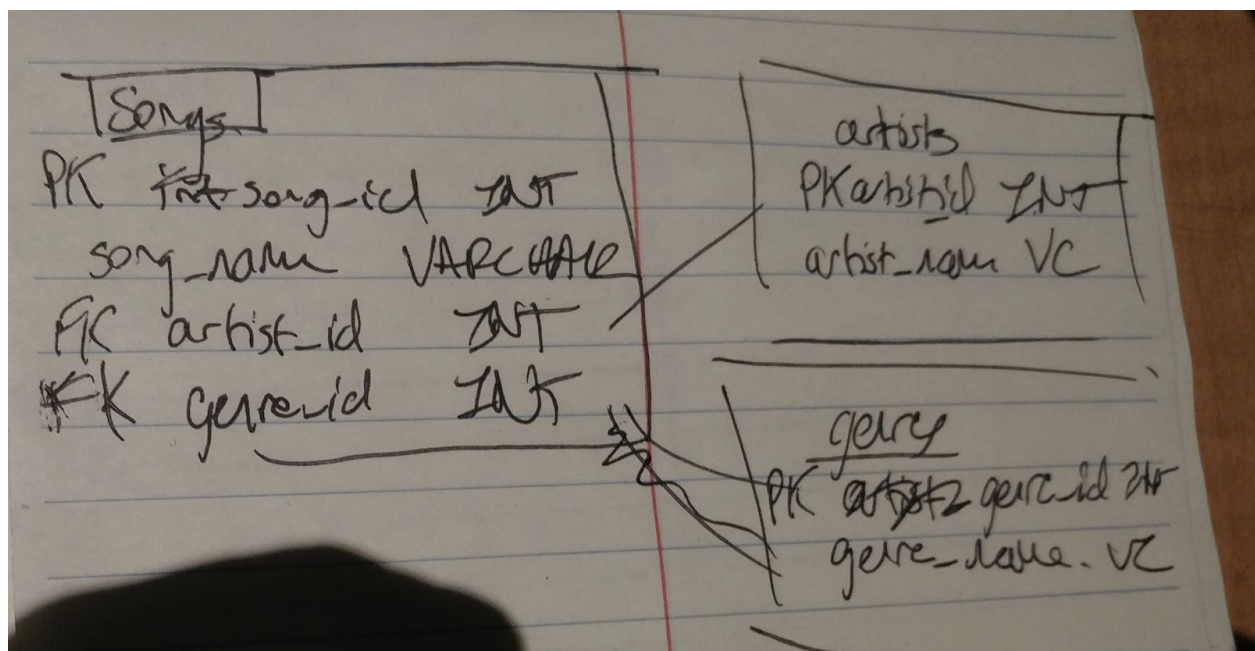 Songs
PK song_id INT
song_name VARCHAR
FK artist_id INT
FK genre_id INT
artists
PK artist_id INT
artist_name VC
genre
PK genre_id INT
genre_name. VC